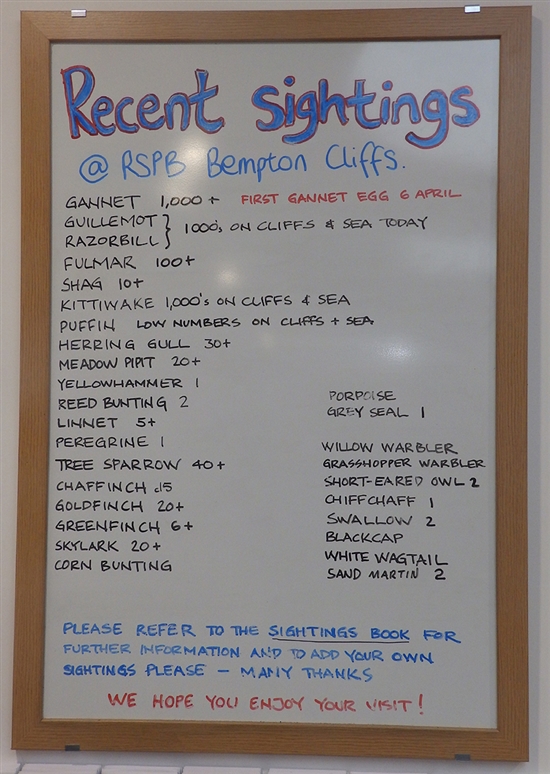 Recent Sightings
@ RSPB Bempton Cliffs.
GANNET 1,000+ FIRST GANNET EGG 6 APRIL
GUILLEMOT
RAZORBILL } 1000's ON CLIFFS & SEA TODAY
FULMAR 100+
SHAG 10+
KITTIWAKE 1,000's ON CLIFFS & SEA
PUFFIN LOW NUMBERS ON CLIFFS + SEA
HERRING GULL 30+
MEADOW PIPIT 20+
YELLOWHAMMER 1
REED BUNTING 2
LINNET 5+
PEREGRINE 1
TREE SPARROW 40+
CHAFFINCH c15
GOLDFINCH 20+
GREENFINCH 6+
SKYLARK 20+
CORN BUNTING
PORPOISE
GREY SEAL 1
WILLOW WARBLER
GRASSHOPPER WARBLER
SHORT-EARED OWL 2
CHIFFCHAFF 1
SWALLOW 2
BLACKCAP
WHITE WAGTAIL
SAND MARTIN 2
PLEASE REFER TO THE SIGHTINGS BOOK FOR
FURTHER INFORMATION AND TO ADD YOUR OWN
SIGHTINGS PLEASE – MANY THANKS
WE HOPE YOU ENJOY YOUR VISIT!